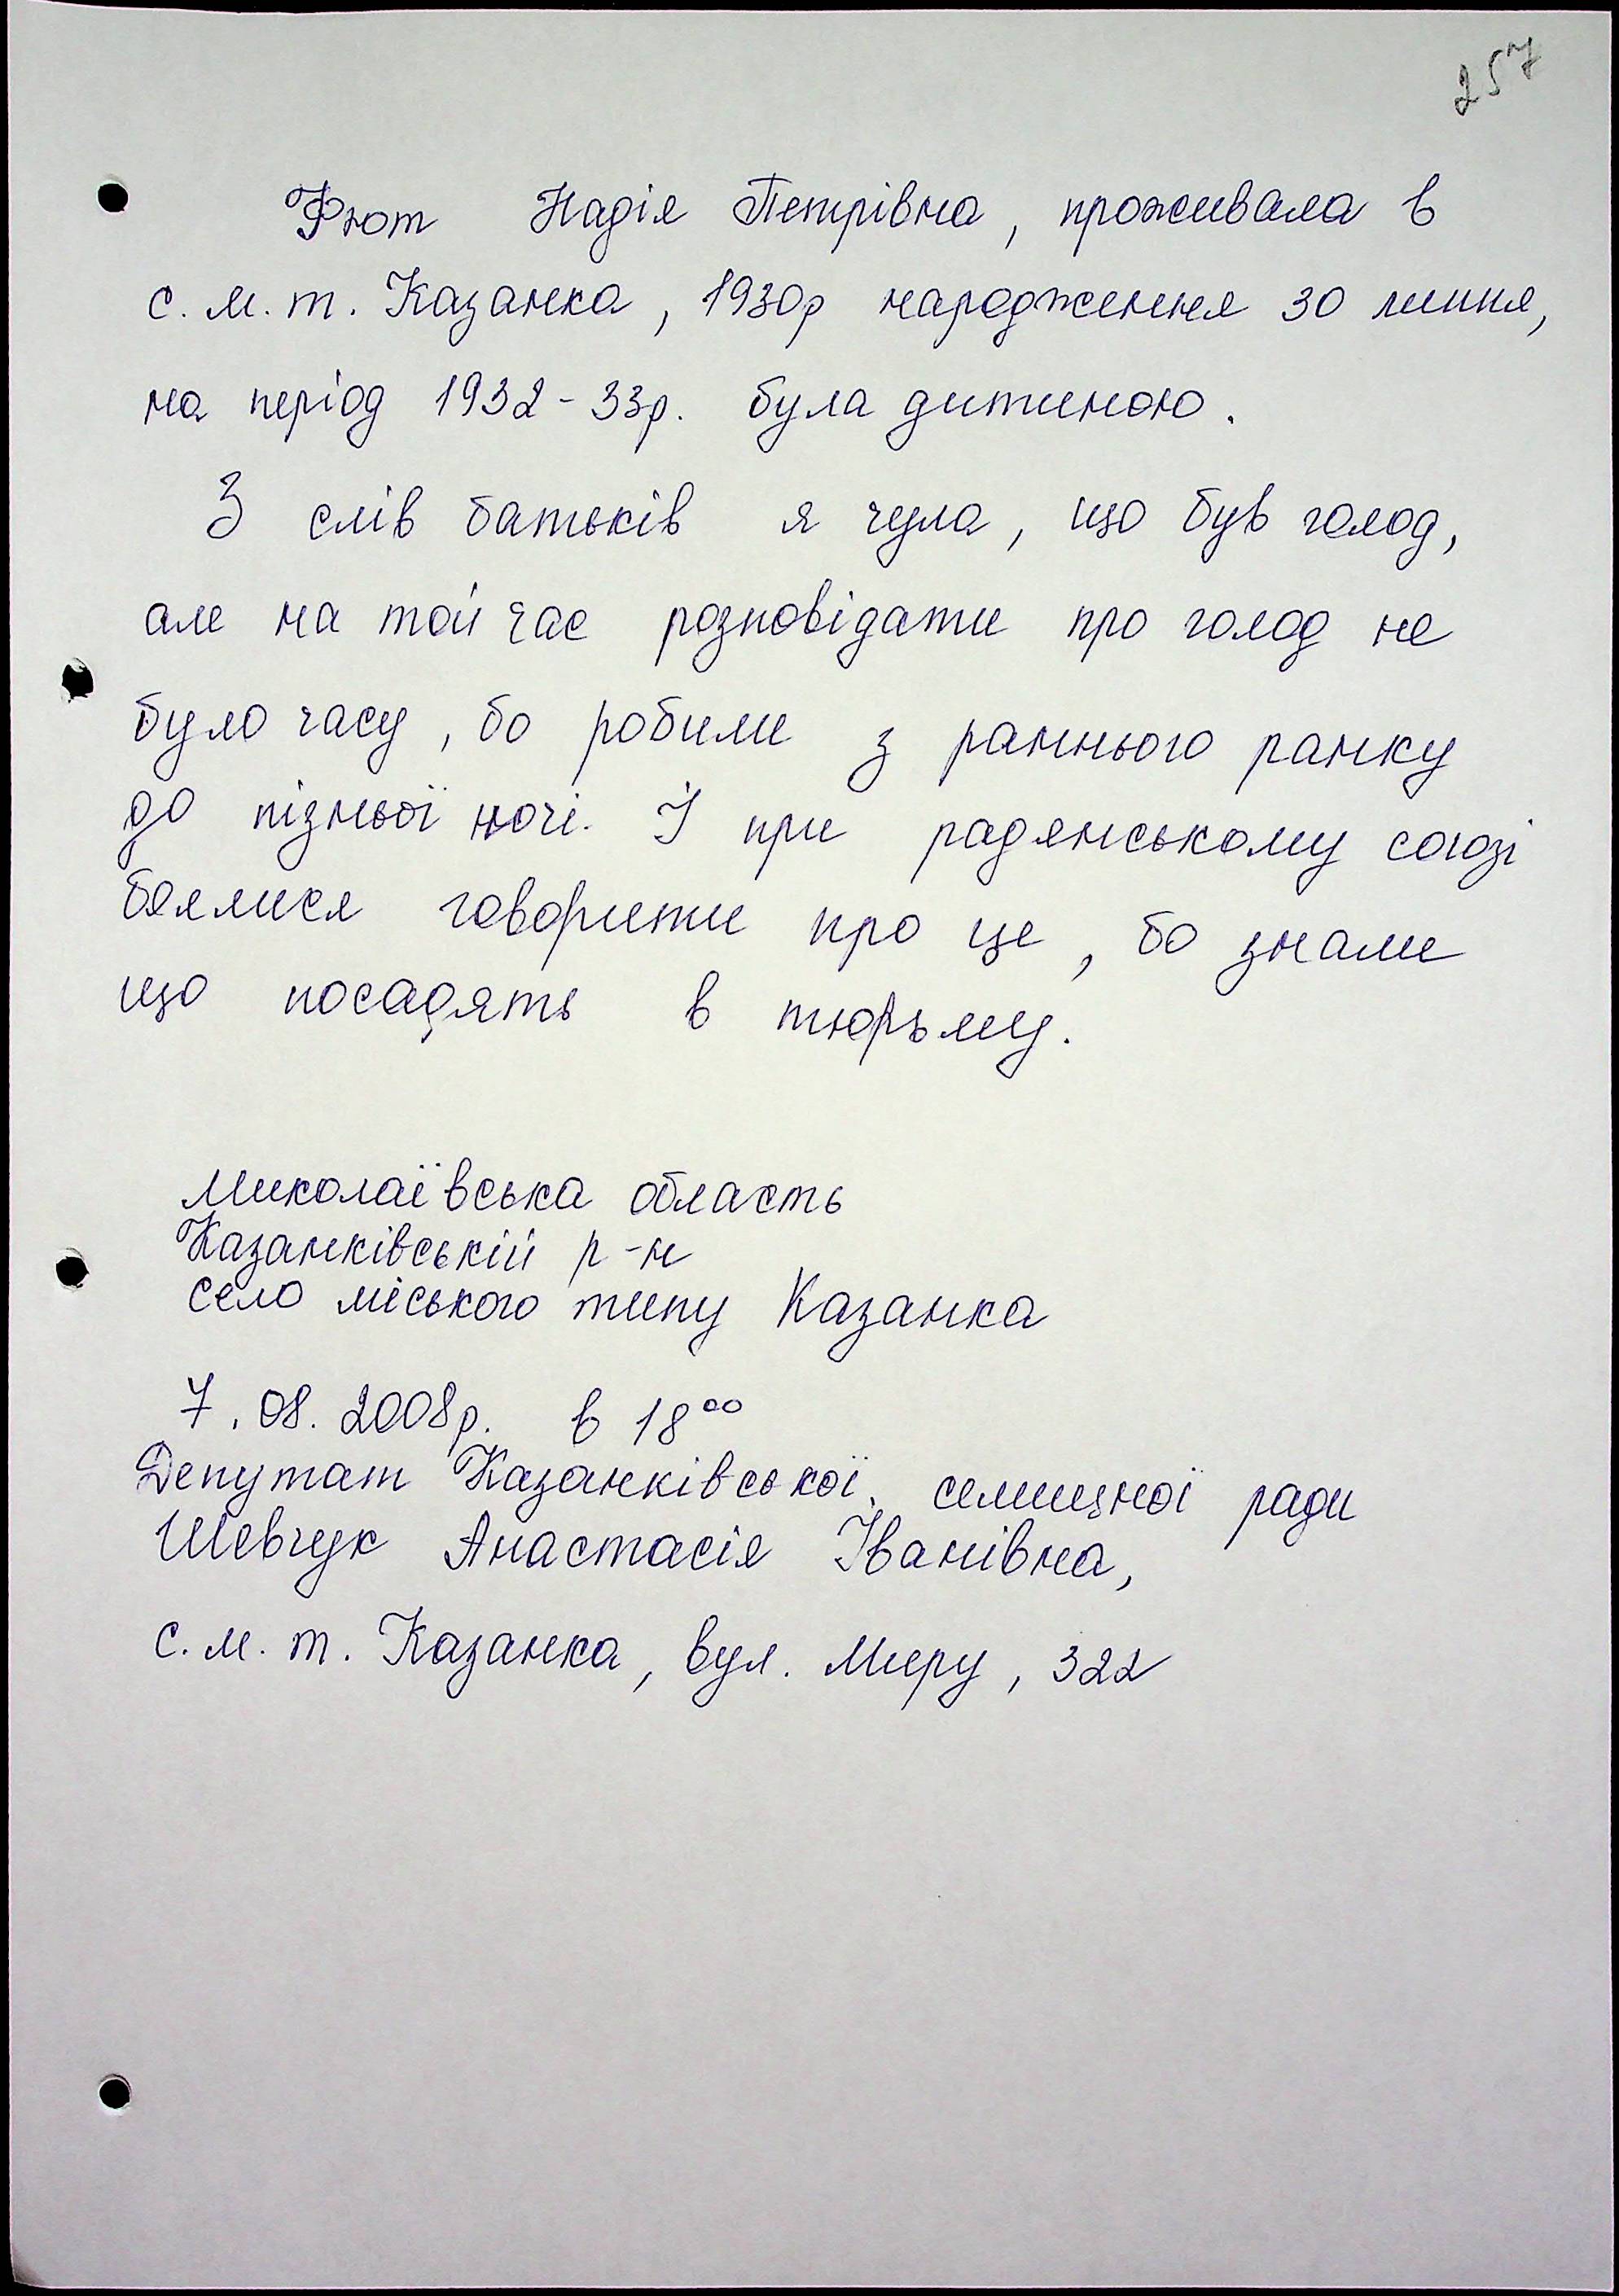 257
Фют Надія Петрівна, проживала в
с. м. т. Казанка, 1930р народження 30 липня,
на період 1932-33р. була дитиною.
З слів батьків я чула, що був голод,
але на той час розповідати про голод не
було часу, бо робили з раннього ранку
до пізньої ночі. І при радянському союзі
боялися говорити про це, бо знали
що посадять в тюрьму.
Миколаївська область
Казанківській р-н
село міського типу Казанка
7.08.2008р. в 18⁰⁰
Депутат Казанківської селищної ради
Шевчук Анастасія Іванівна,
с. м. т. Казанка, вул. Миру, 322